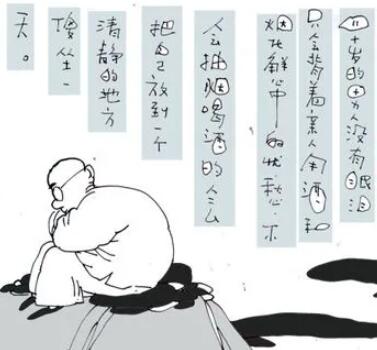 四十岁的男人没有眼泪
只会背着亲人用酒和
烟化解心中的忧愁.不
会抽烟喝酒的
把自己放到一个
清静的地方
傻坐一
天。